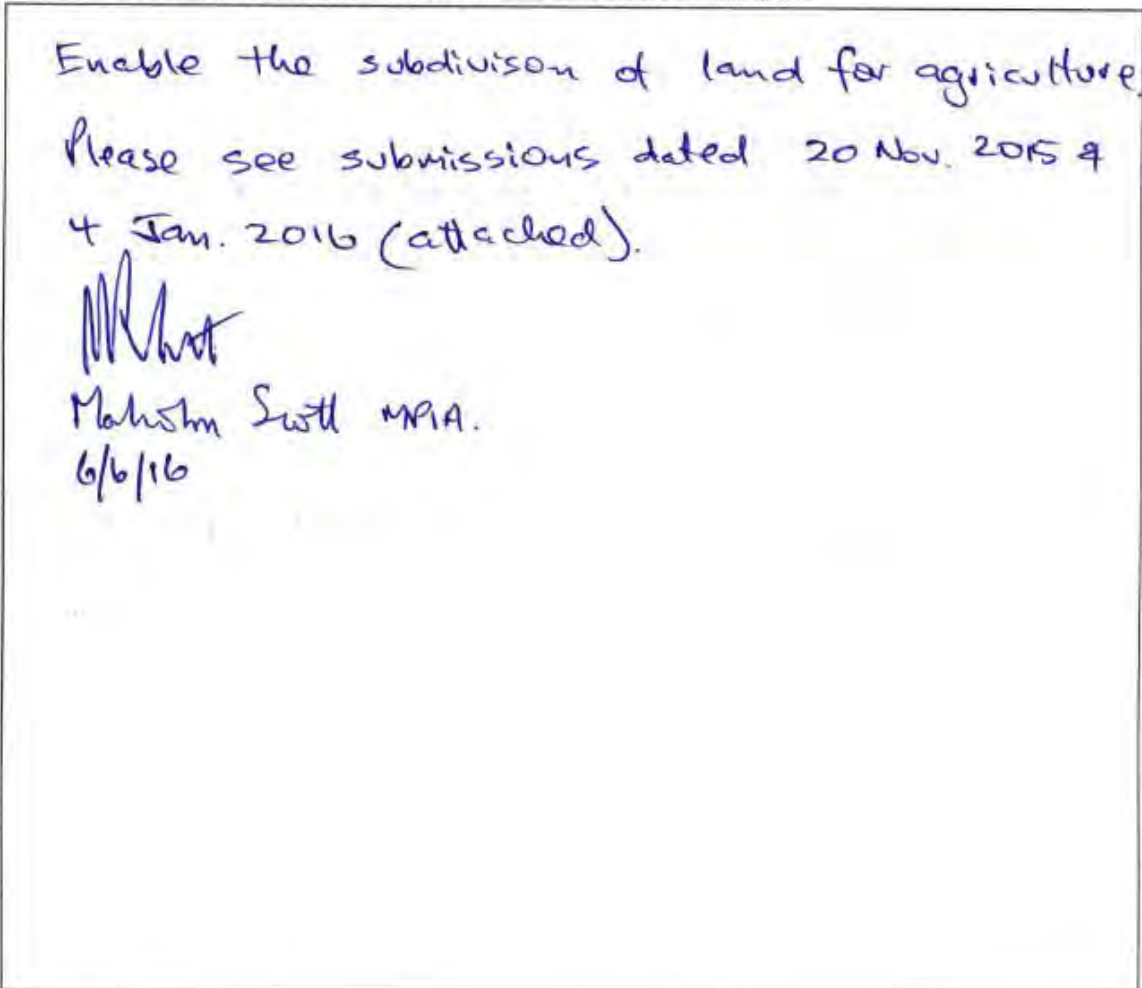 Enable the subdivison of land for agriculture.
Please see submissions dated 20 Nov. 2015 &
4 Jan. 2016 (attached).
Malcolm Scott MPIA.
6/6/16